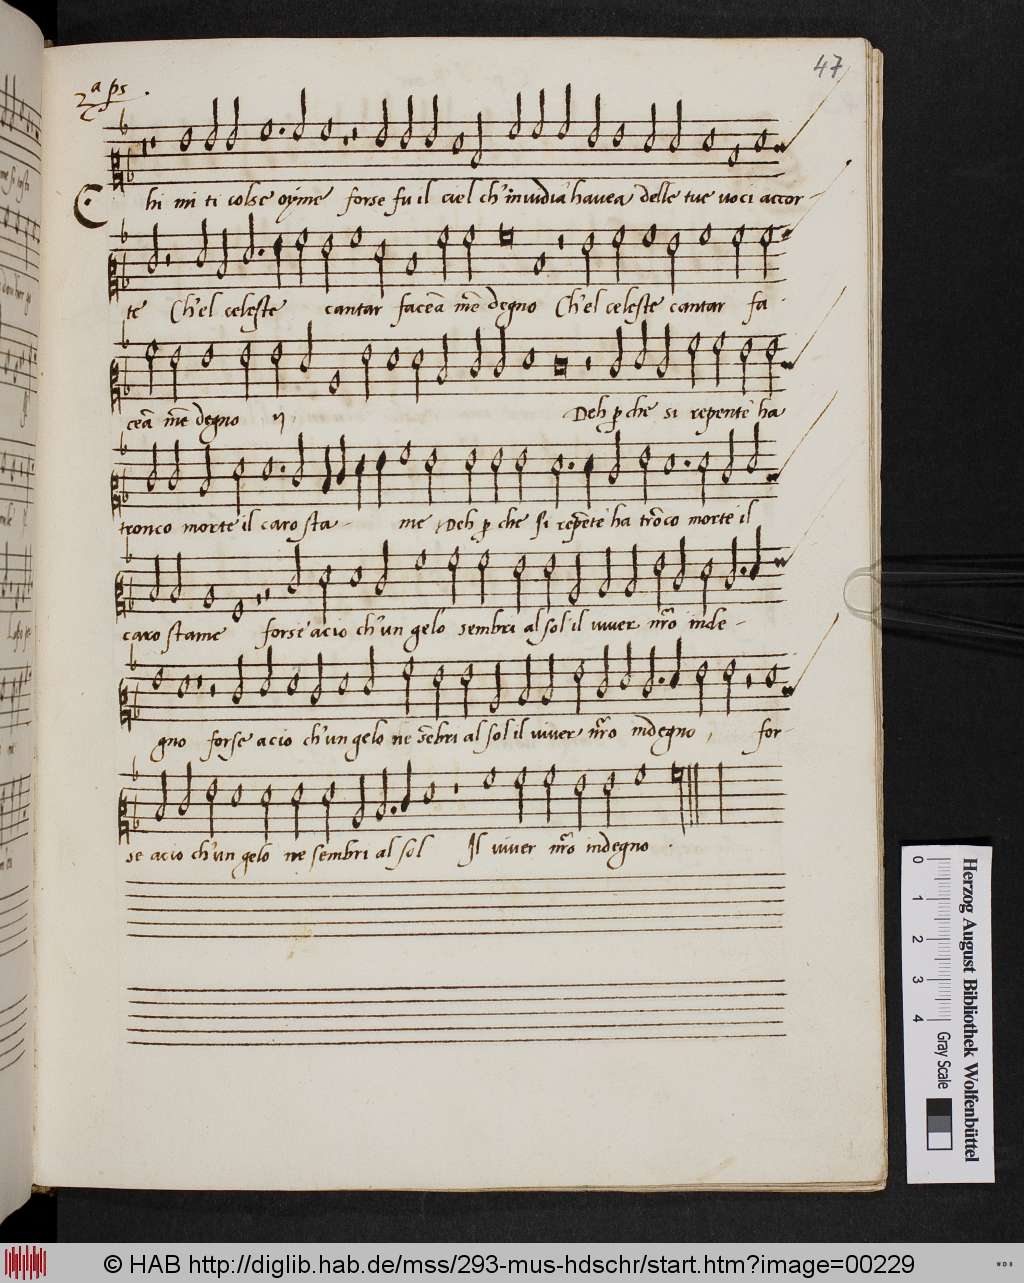 47
2ª ps.
Chi mi ti tolse oyme forse fu il ciel ch'invidia havea delle tue voci accor-
te Ch'el celeste cantar faceā mē degno Ch'el celeste cantar fa-
ceā mē degno ij Deh p che si repente ha
tronco morte il caro sta- me Deh p che si repēte ha trōco morte il
caro stame forse acio ch'un gelo sembri al sol il viver nr̃o inde-
gno forse acio ch'un gelo ne sēbri al sol il viver nr̃o indegno, for-
se acio ch'un gelo ne sembri al sol Il viver nr̃o indegno.
0 1 2 3 4
Herzog August Bibliothek Wolfenbüttel
Gray Scale
© HAB http://diglib.hab.de/mss/293-mus-hdschr/start.htm?image=00229